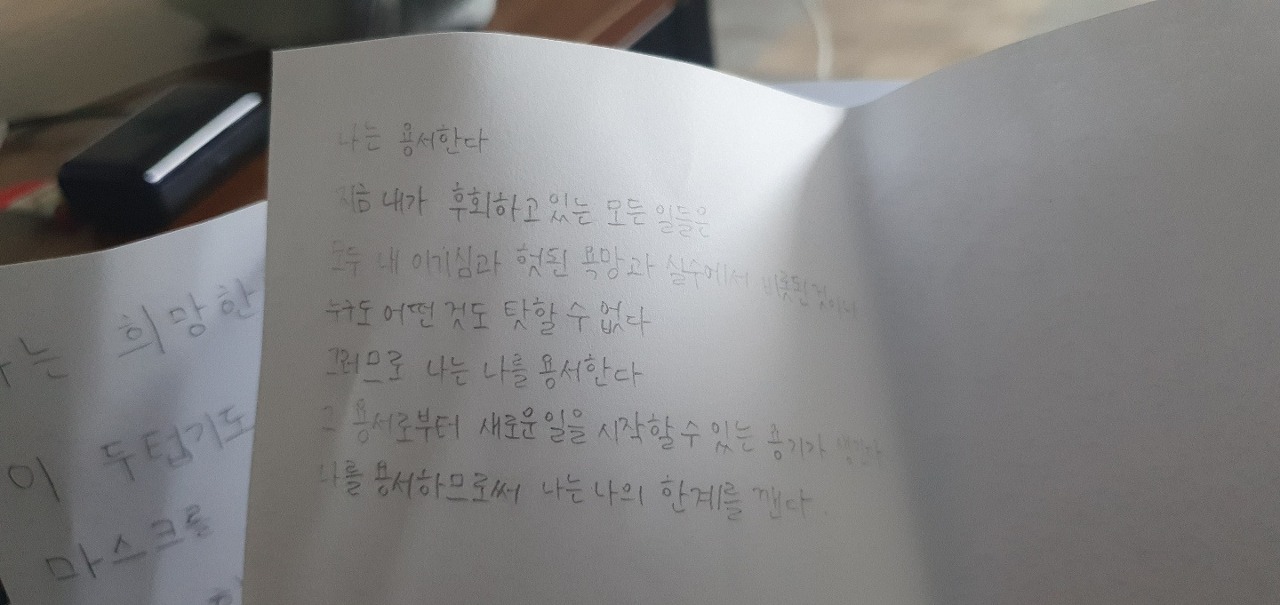 나는 용서한다
지금 내가 후회하고 있는 모든 일들은
모두 내 이기심과 헛된 욕망과 실수에서 비롯된 것이니
누구도 어떤 것도 탓할 수 없다
그러므로 나는 나를 용서한다
그 용서로부터 새로운 일을 시작할 수 있는 용기가 생긴다
나를 용서하므로써 나는 나의 한계를 깬다.
는 희망한
이 두텁기도
마스크를